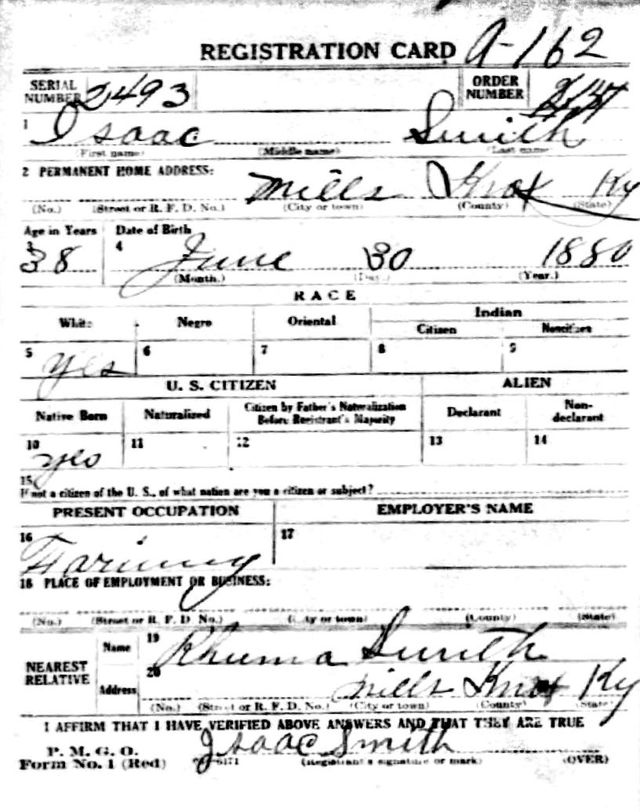 REGISTRATION CARD A-162
SERIAL NUMBER 2493 ORDER NUMBER
1 Isaac Smith
(First name) (Middle name) Last name
2 PERMANENT HOME ADDRESS:
Mills Knox Ky
(No.) (Street or R. F. D. No.) (City or town) (County) (State)
Age in Years Date of Birth
3 38 4 June 30 1880
(Month.) (Day.) (Year.)
RACE
White Negro Oriental Indian
Citizen Noncitizen
5 yes 6 7 8 9
U. S. CITIZEN ALIEN
Native Born Naturalized Citizen by Father's Naturalization Before Registrant's Majority Declarant Non-declarant
10 yes 11 12 13 14
15
If not a citizen of the U. S., of what nation are you a citizen or subject?
PRESENT OCCUPATION EMPLOYER'S NAME
16 Farming 17
18 PLACE OF EMPLOYMENT OR BUSINESS:
(No.) (Street or R. F. D. No.) (City or town) (County) (State)
NEAREST RELATIVE Name 19 Rhuma Smith
Address 20 Mills Knox Ky
(No.) (Street or R. F. D. No.) (City or town) (County) (State)
I AFFIRM THAT I HAVE VERIFIED ABOVE ANSWERS AND THAT THEY ARE TRUE
P. M. G. O.
Form No. 1 (Red) Isaac Smith
(Registrant's signature or mark) (OVER)